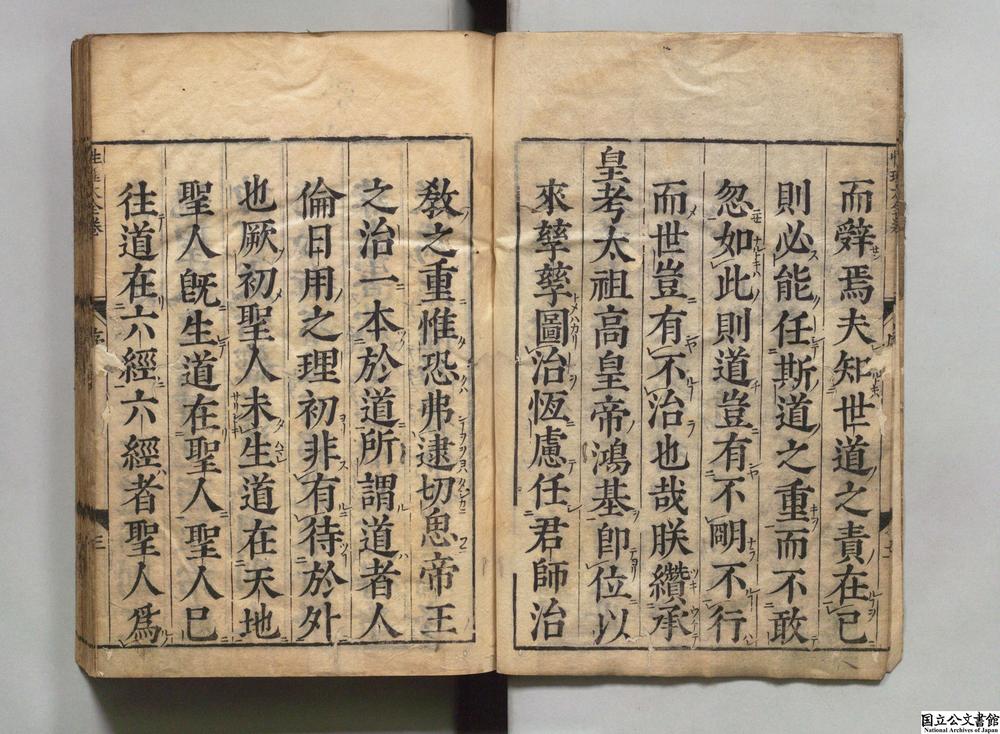 而辭焉夫知世道之責在已
則必能任斯道之重而不敢
忽如此則道豈有不明不行
而世豈有不治也哉朕纘承
皇考太祖高皇帝鴻基卽位以
來孳孳圖治恆慮任君師治
教之重惟恐弗逮切思帝王
之治一本於道所謂道者人
倫日用之理初非有待於外
也厥初聖人未生道在天地
聖人旣生道在聖人聖人已
往道在六經六經者聖人爲
序
三
国立公文書館
National Archives of Japan